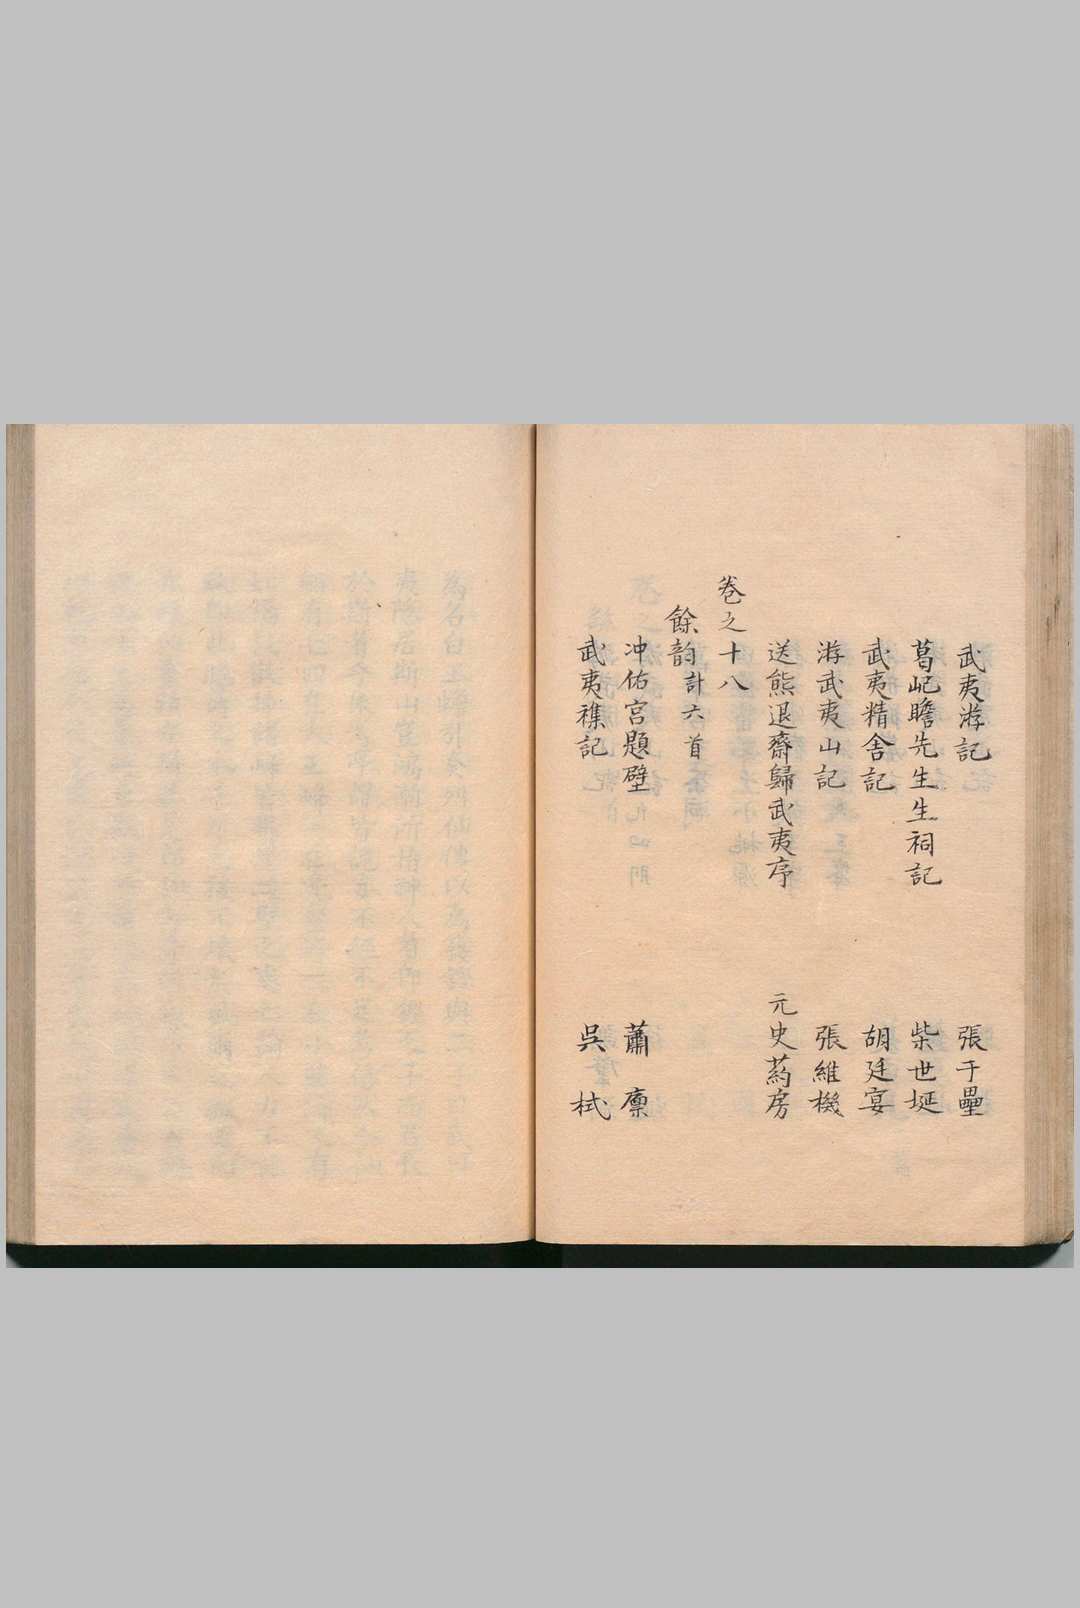 武夷游記　張于壘
葛屺瞻先生生祠記　柴世埏
武夷精舍記　胡廷宴
游武夷山記　張維機
送熊退齋歸武夷序　元史葯房
卷之十八
餘韵計六首
冲佑宮題壁　蕭廩
武夷襍記　吳栻